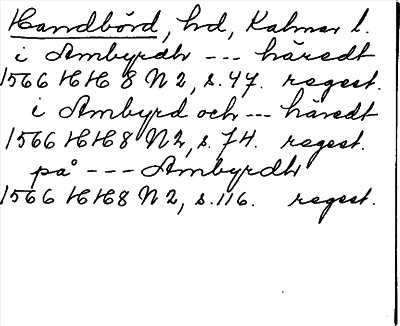 Handbörd, hd, Kalmar l.
i Ambyrdh --- häredt
1566 HH 8 N 2, s. 47. regest.
i Ambyrd och --- häredt
1566 HH8 N 2, s. 74. regest.
på --- Ambyrdh
1566 HH8 N 2, s. 116. regest.